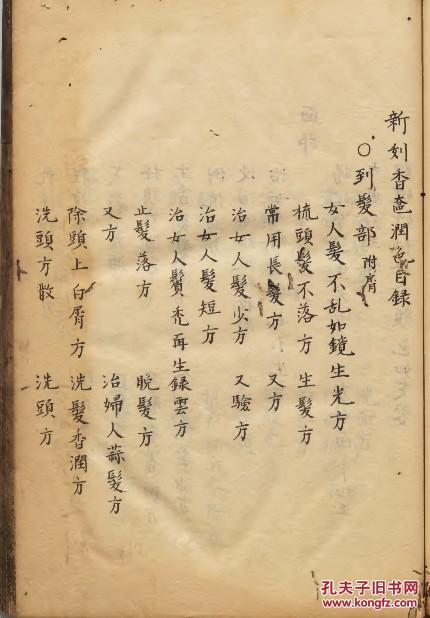 新刻香奩潤色目錄
○到髮部 附膏
女人髮不乱如鏡生光方
梳頭髮不落方 生髮方
常用長髮方 又方
治女人髮少方 又驗方
治女人髮短方
治女人鬢秃再生緑雲方
止髮落方 脫髮方
又方 治婦人蒜髮方
除頭上白屑方 洗髮香潤方
洗頭方散 洗頭方
孔夫子旧书网
www.kongfz.com